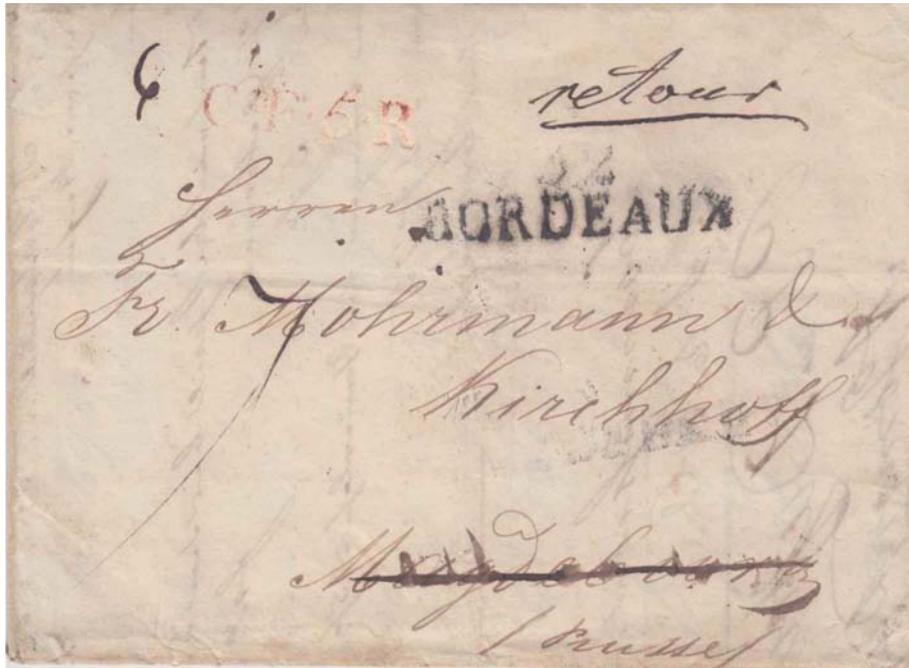 6
C.F.5.R.
retour
32
BORDEAUX
Herren
Fr. Mohrmann &
Kirchhoff
Magdebourg
/ Prusse /